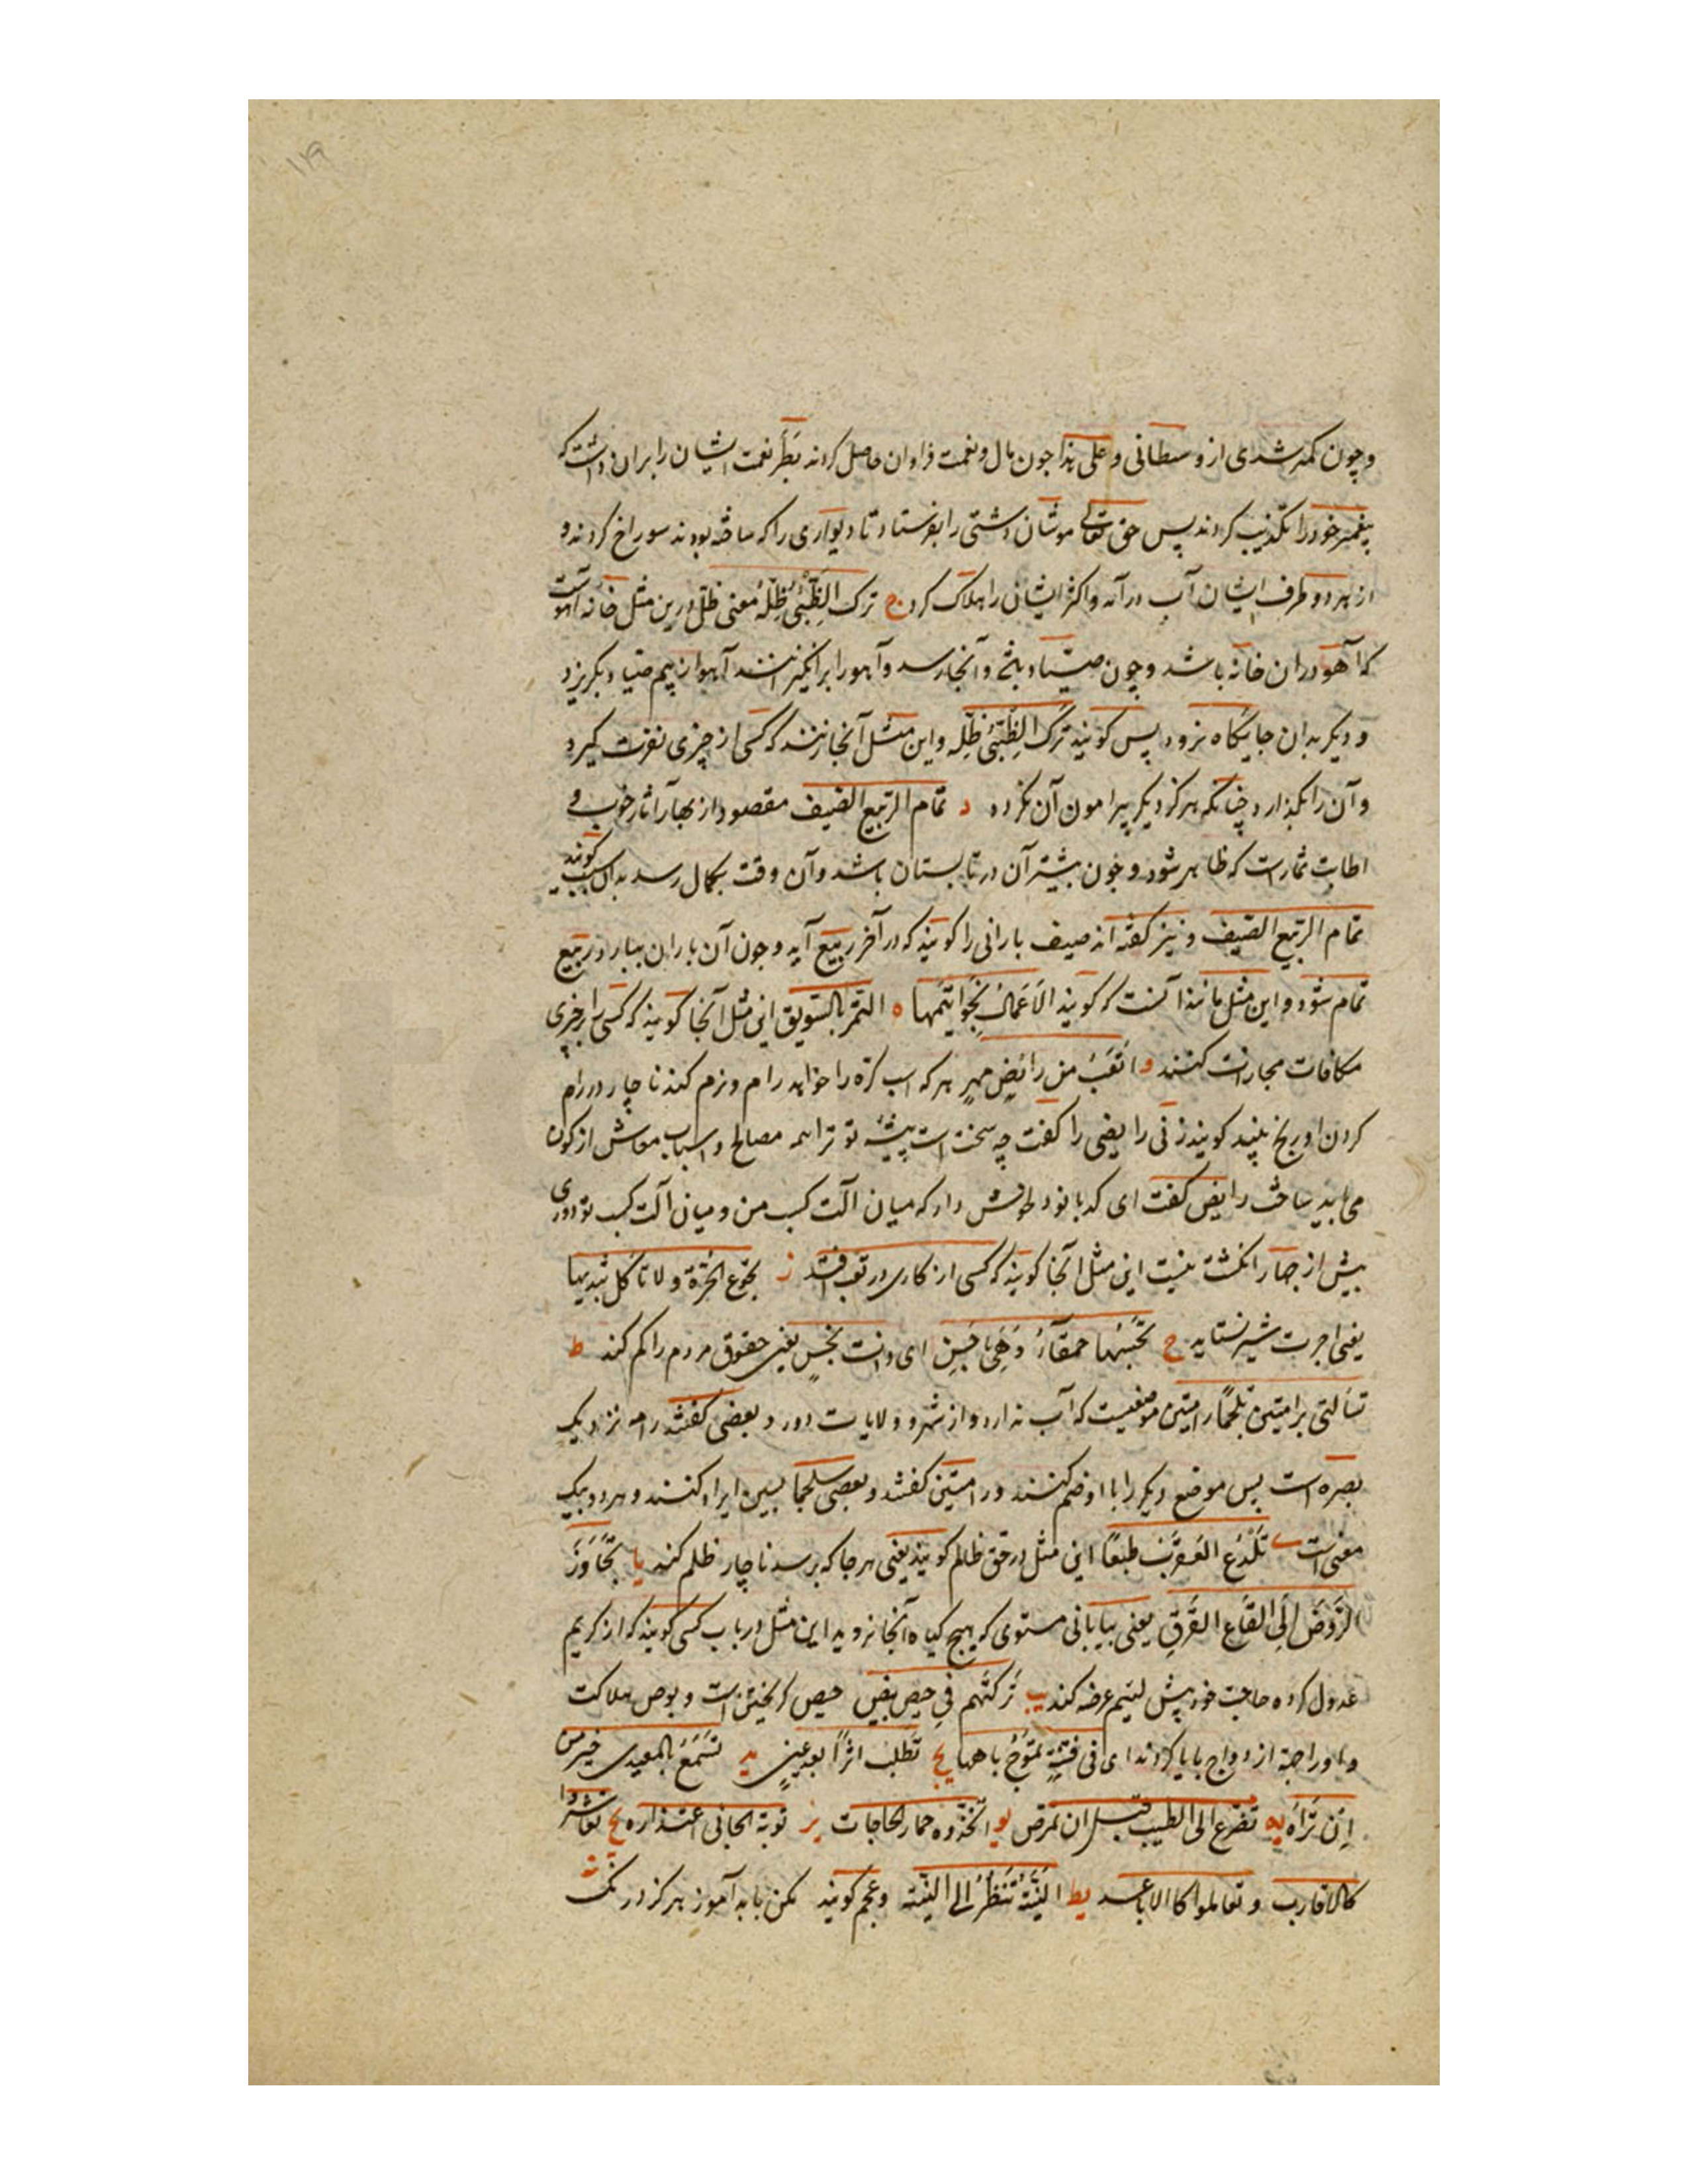 ۱۱۹
وچون کمتر شدی از وسطانی و علی هذا چون مال و نعمت فراوان حاصل کردند بطر نعمت ایشان را بران داشت که
پیغمبر خود را تکذیب کردند پس حق تعالی موشان دشتی را بفرستاد تا دیواری را که ساخته بودند سوراخ کردند و
از هر دو طرف ایشان آب درآمد و اکثر ایشان را هلاک کرد ج ترک الظَّبْیُ ظِلَّهُ معنی ظل درین مثل خانه آهوست
که آهو دران خانه باشد و چون صیاد آنجا رسد و آهو را برانگیزاند آهو از بیم صیاد بگریزد
و دیگر بدان جایگاه نرود پس گویند ترک الظَّبْیُ ظِلَّه و این مثل آنجا زنند که کسی از چیزی نفرت گیرد
و آن را بگذارد چنانکه هرگز دیگر پیرامون آن نگردد د تمام الربیع الصیف مقصود از بهار آثار خوب و
اطایب ثمار است که ظاهر شود و چون بیشتر آن در تابستان باشد و آن وقت بکمال رسد بدان سبب گویند
تمام الربیع الصیف و نیز گفته اند صیف بارانی را گویند که در آخر ربیع آید و چون آن باران ببارد ربیع
تمام شود و این مثل مانند آنست که گویند الاَعمالُ بخواتیمها ه التمر بالسویق این مثل آنجا گویند که کسی را بر چیزی
مکافات مجازات کنند و اتعَبُ من رائضِ مهرٍ هر که اسب کره را خواهد رام و نرم کند ناچار در رام
کردن او رنج بیند گویند زنی رایضی را گفت چه سخت است پیشه تو ترا همه مصالح و اسباب معاش از کون
می باید ساخت رایض گفت ای کدبانو خاموش دار که میان آلت کسب من و میان آلت کسب تو دوری
بیش از چهار انگشت نیست این مثل آنجا گویند که کسی از کاری در تعب افتد ز تجوع الحُرّة و لا تاکل بثدییها
یعنی اجرت شیر نستاند ح تحسبُها حمقآءُ وَهِیَ باخس ای ذات بخسٍ یعنی حقوق مردم را کم کند ط
تسألنی برامتین سلجما رامتین موضعیست که آب ندارد و از شهر و ولایات دور و بعضی گفتند رامه نزدیک
بصره است پس موضع دیگر را با او ضم کنند و رامتین گفتند و بعضی سلجما بسین ایراد کنند و هر دو بیک
معنی است ی تَلْدَغُ العَقرَبُ طبعًا این مثل در حق ظالم گویند یعنی هر جا که برسد ناچار ظلم کند یا تَجَاوَزَ
الرَّوضَ اِلَی القَاعِ القَرَقِ یعنی بیابانی مستوی که هیچ گیاه آنجا نروید این مثل در باب کسی گویند که از کریم
عدول کرده حاجت خود پیش لئیم عرضه کند یب تَرَکتُهم فی حیص بیص حیص گریختن است و بوص هلاکت
و واو را جهة ازدواج با یا کردند ای فی فتنةٍ تموّج باهلها یج تَطلب اثراً بعد عینٍ ید تسمَعُ بالمعیدی خیر من
اِن تَرَاه یه تضرّع الی الطبیب قبل ان تمرض یو اتّخذوه حمار الحاجات یز توبة الجانی اعتذاره یح تعاشروا
کالاقارب و تعاملوا کالاباعد یط التینة تَنظُرُ الی التینة و عجم گویند